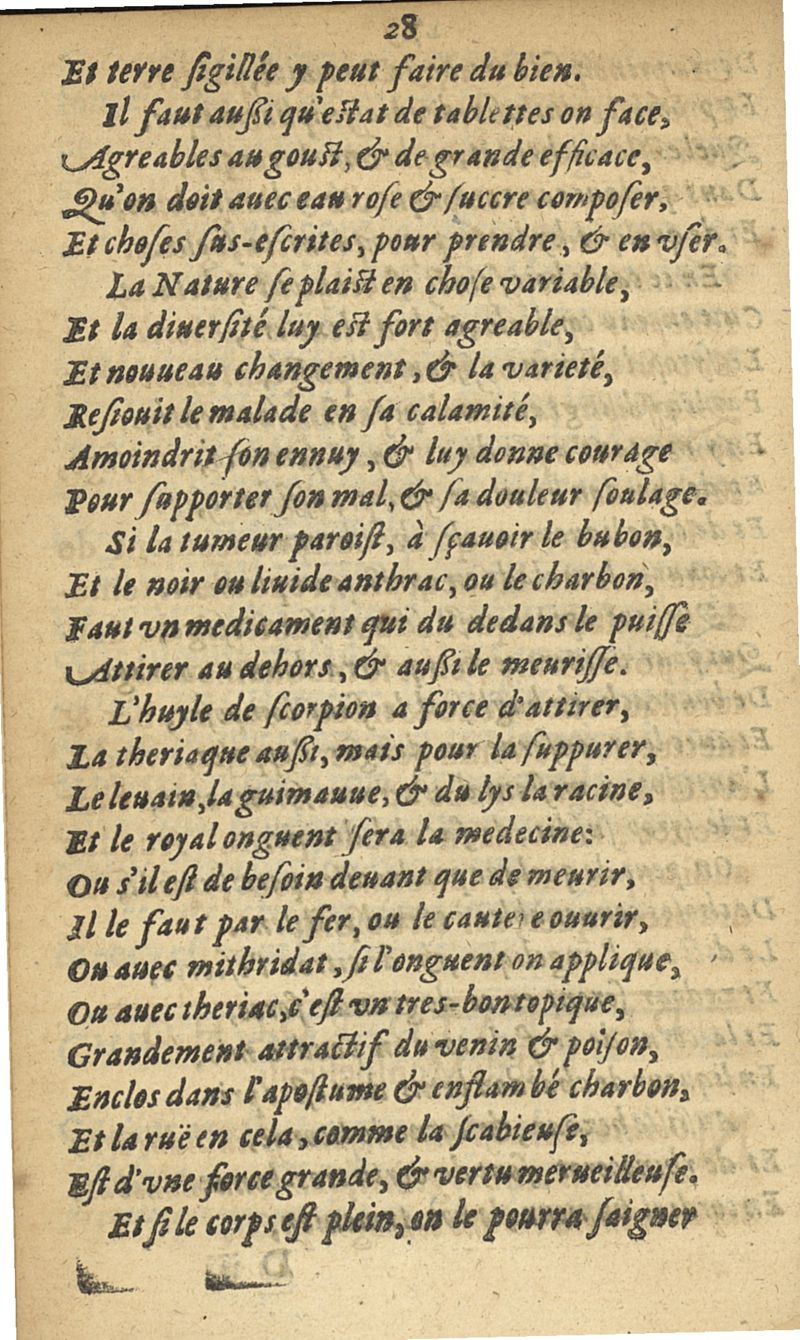 28
Et terre ſigillée y peut faire du bien.
Il faut außi qu'eſtat de tablettes on face,
Agreables au gouſt, & de grande efficace,
Qu'on doit auec eau roſe & ſuccre compoſer,
Et choſes ſus-eſcrites, pour prendre, & en vſer.
La Nature ſe plaiſt en choſe variable,
Et la diuerſité luy eſt fort agreable,
Et nouueau changement, & la varieté,
Reſiouit le malade en ſa calamité,
Amoindrit ſon ennuy, & luy donne courage
Pour ſupporter ſon mal, & ſa douleur ſoulage.
Si la tumeur paroiſt, à ſçauoir le bubon,
Et le noir ou liuide anthrac, ou le charbon,
Faut vn medicament qui du dedans le puiſſe
Attirer au dehors, & außi le meuriſſe.
L'huyle de ſcorpion a force d'attirer,
La theriaque außi, mais pour la ſuppurer,
Le leuain, la guimauue, & du lys la racine,
Et le royal onguent ſera la medecine:
Ou s'il eſt de beſoin deuant que de meurir,
Il le faut par le fer, ou le cautere ouurir,
Ou auec mithridat, ſi l'onguent on applique,
Ou auec theriac, c'eſt vn tres-bon topique,
Grandement attractif du venin & poiſon,
Enclos dans l'apoſtume & enflambé charbon,
Et la ruë en cela, comme la ſcabieuſe,
Eſt d'vne force grande, & vertu merueilleuſe.
Et ſi le corps eſt plein, on le pourra ſaigner